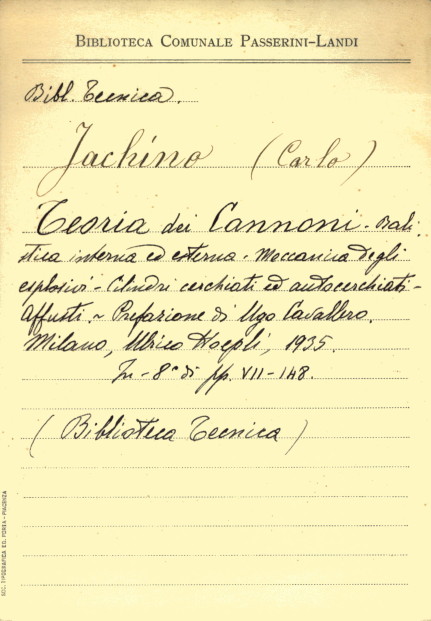 BIBLIOTECA COMUNALE PASSERINI-LANDI
Bibl. Tecnica.
Jachino (Carlo)
Teoria dei Cannoni - Bali
stica interna ed esterna - Meccanica degli
esplosivi - Cilindri cerchiati ed autocerchiati -
Affusti. ~ Prefazione di Ugo Cavallero.
Milano, Ulrico Hoepli, 1935.
In - 8° di pp. VII-148.
(Biblioteca Tecnica)
SOC. TIPOGRAFICA ED. PORTA - PIACENZA